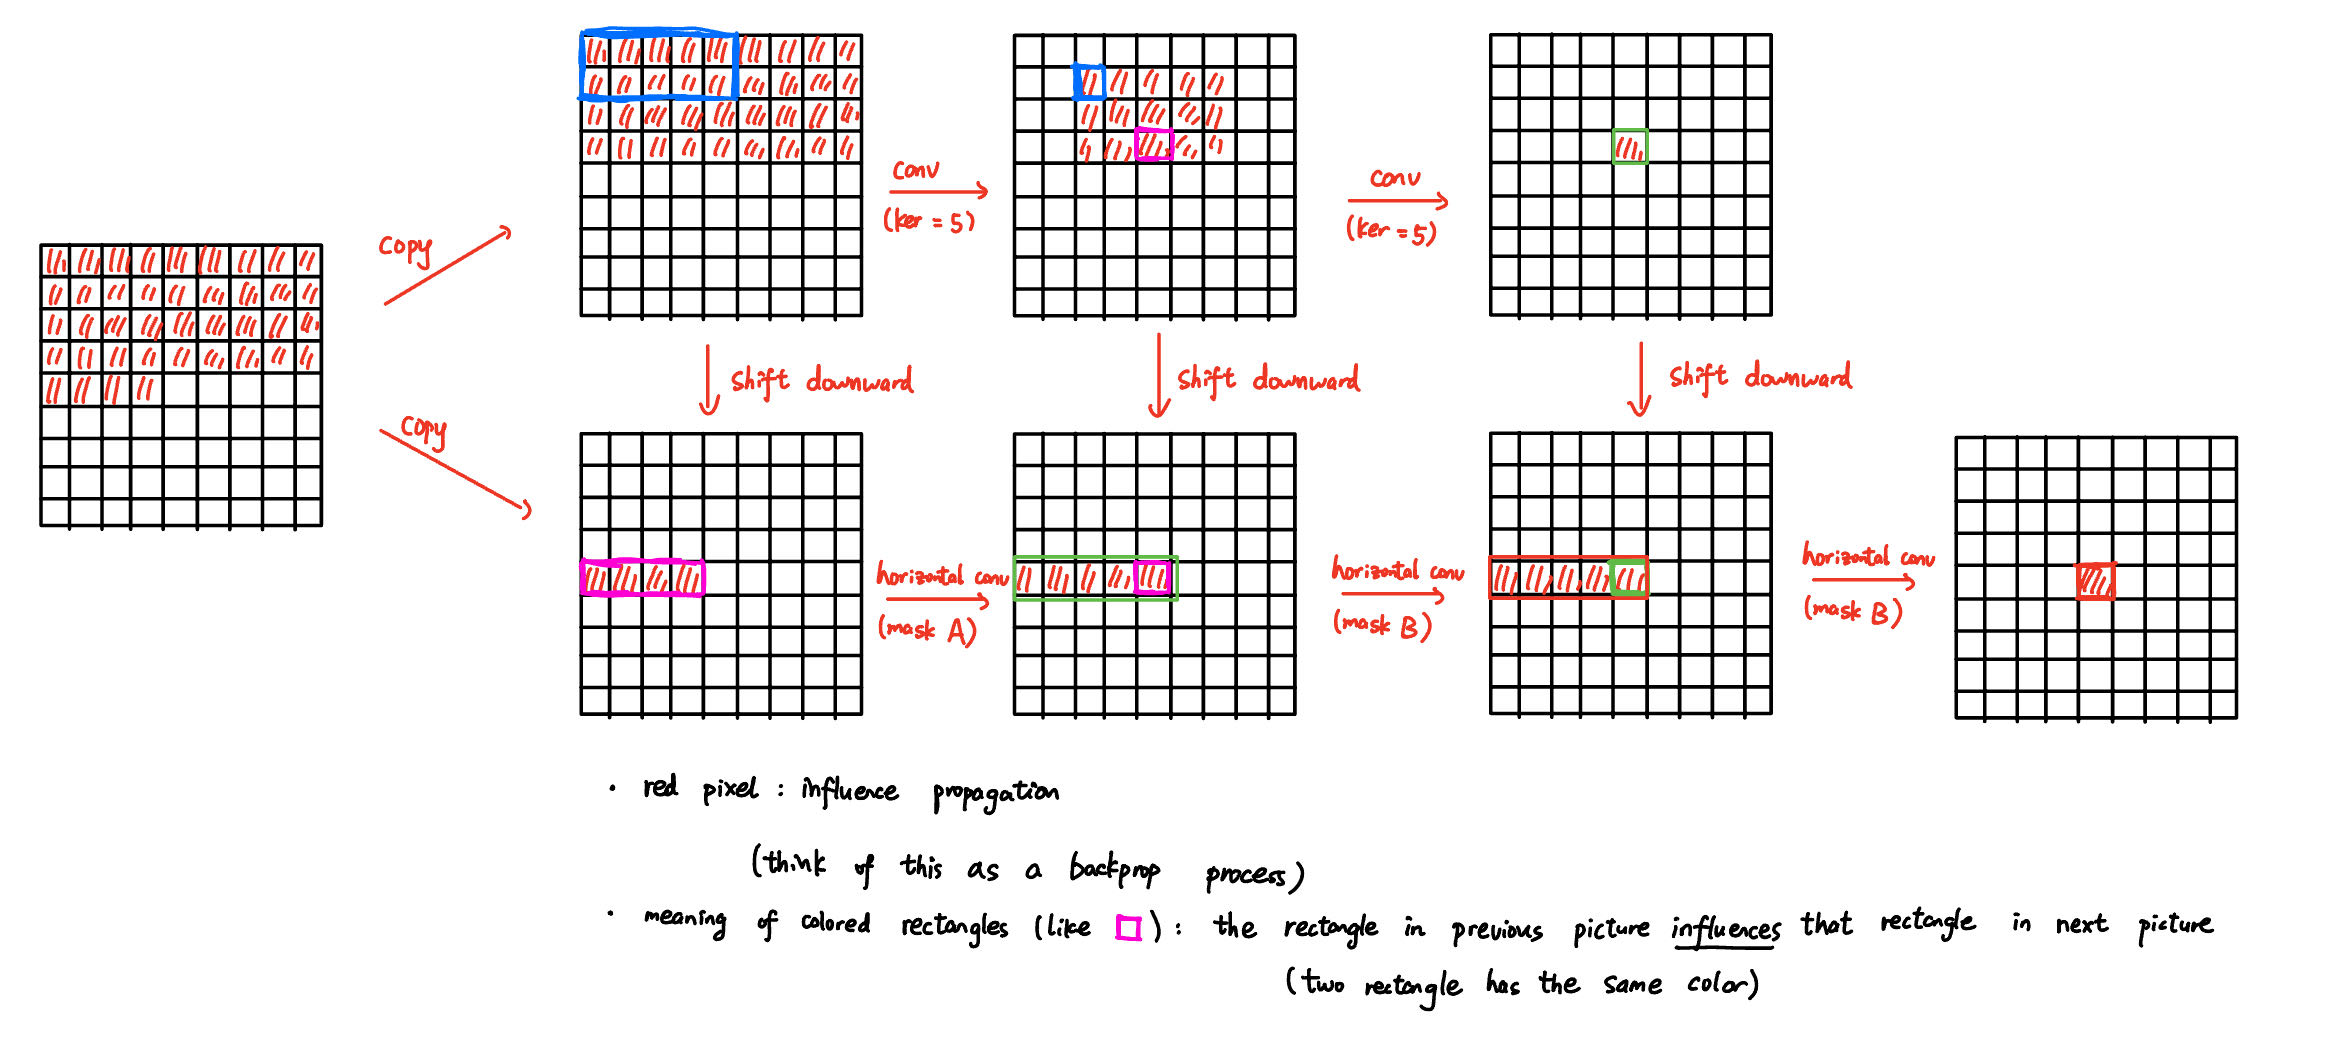 copy
conv
(ker = 5)
conv
(ker = 5)
copy
shift downward
shift downward
shift downward
horizontal conv
(mask A)
horizontal conv
(mask B)
horizontal conv
(mask B)
· red pixel : influence propagation
(think of this as a backprop process)
· meaning of colored rectangles (like ) : the rectangle in previous picture influences that rectangle in next picture
(two rectangle has the same color)